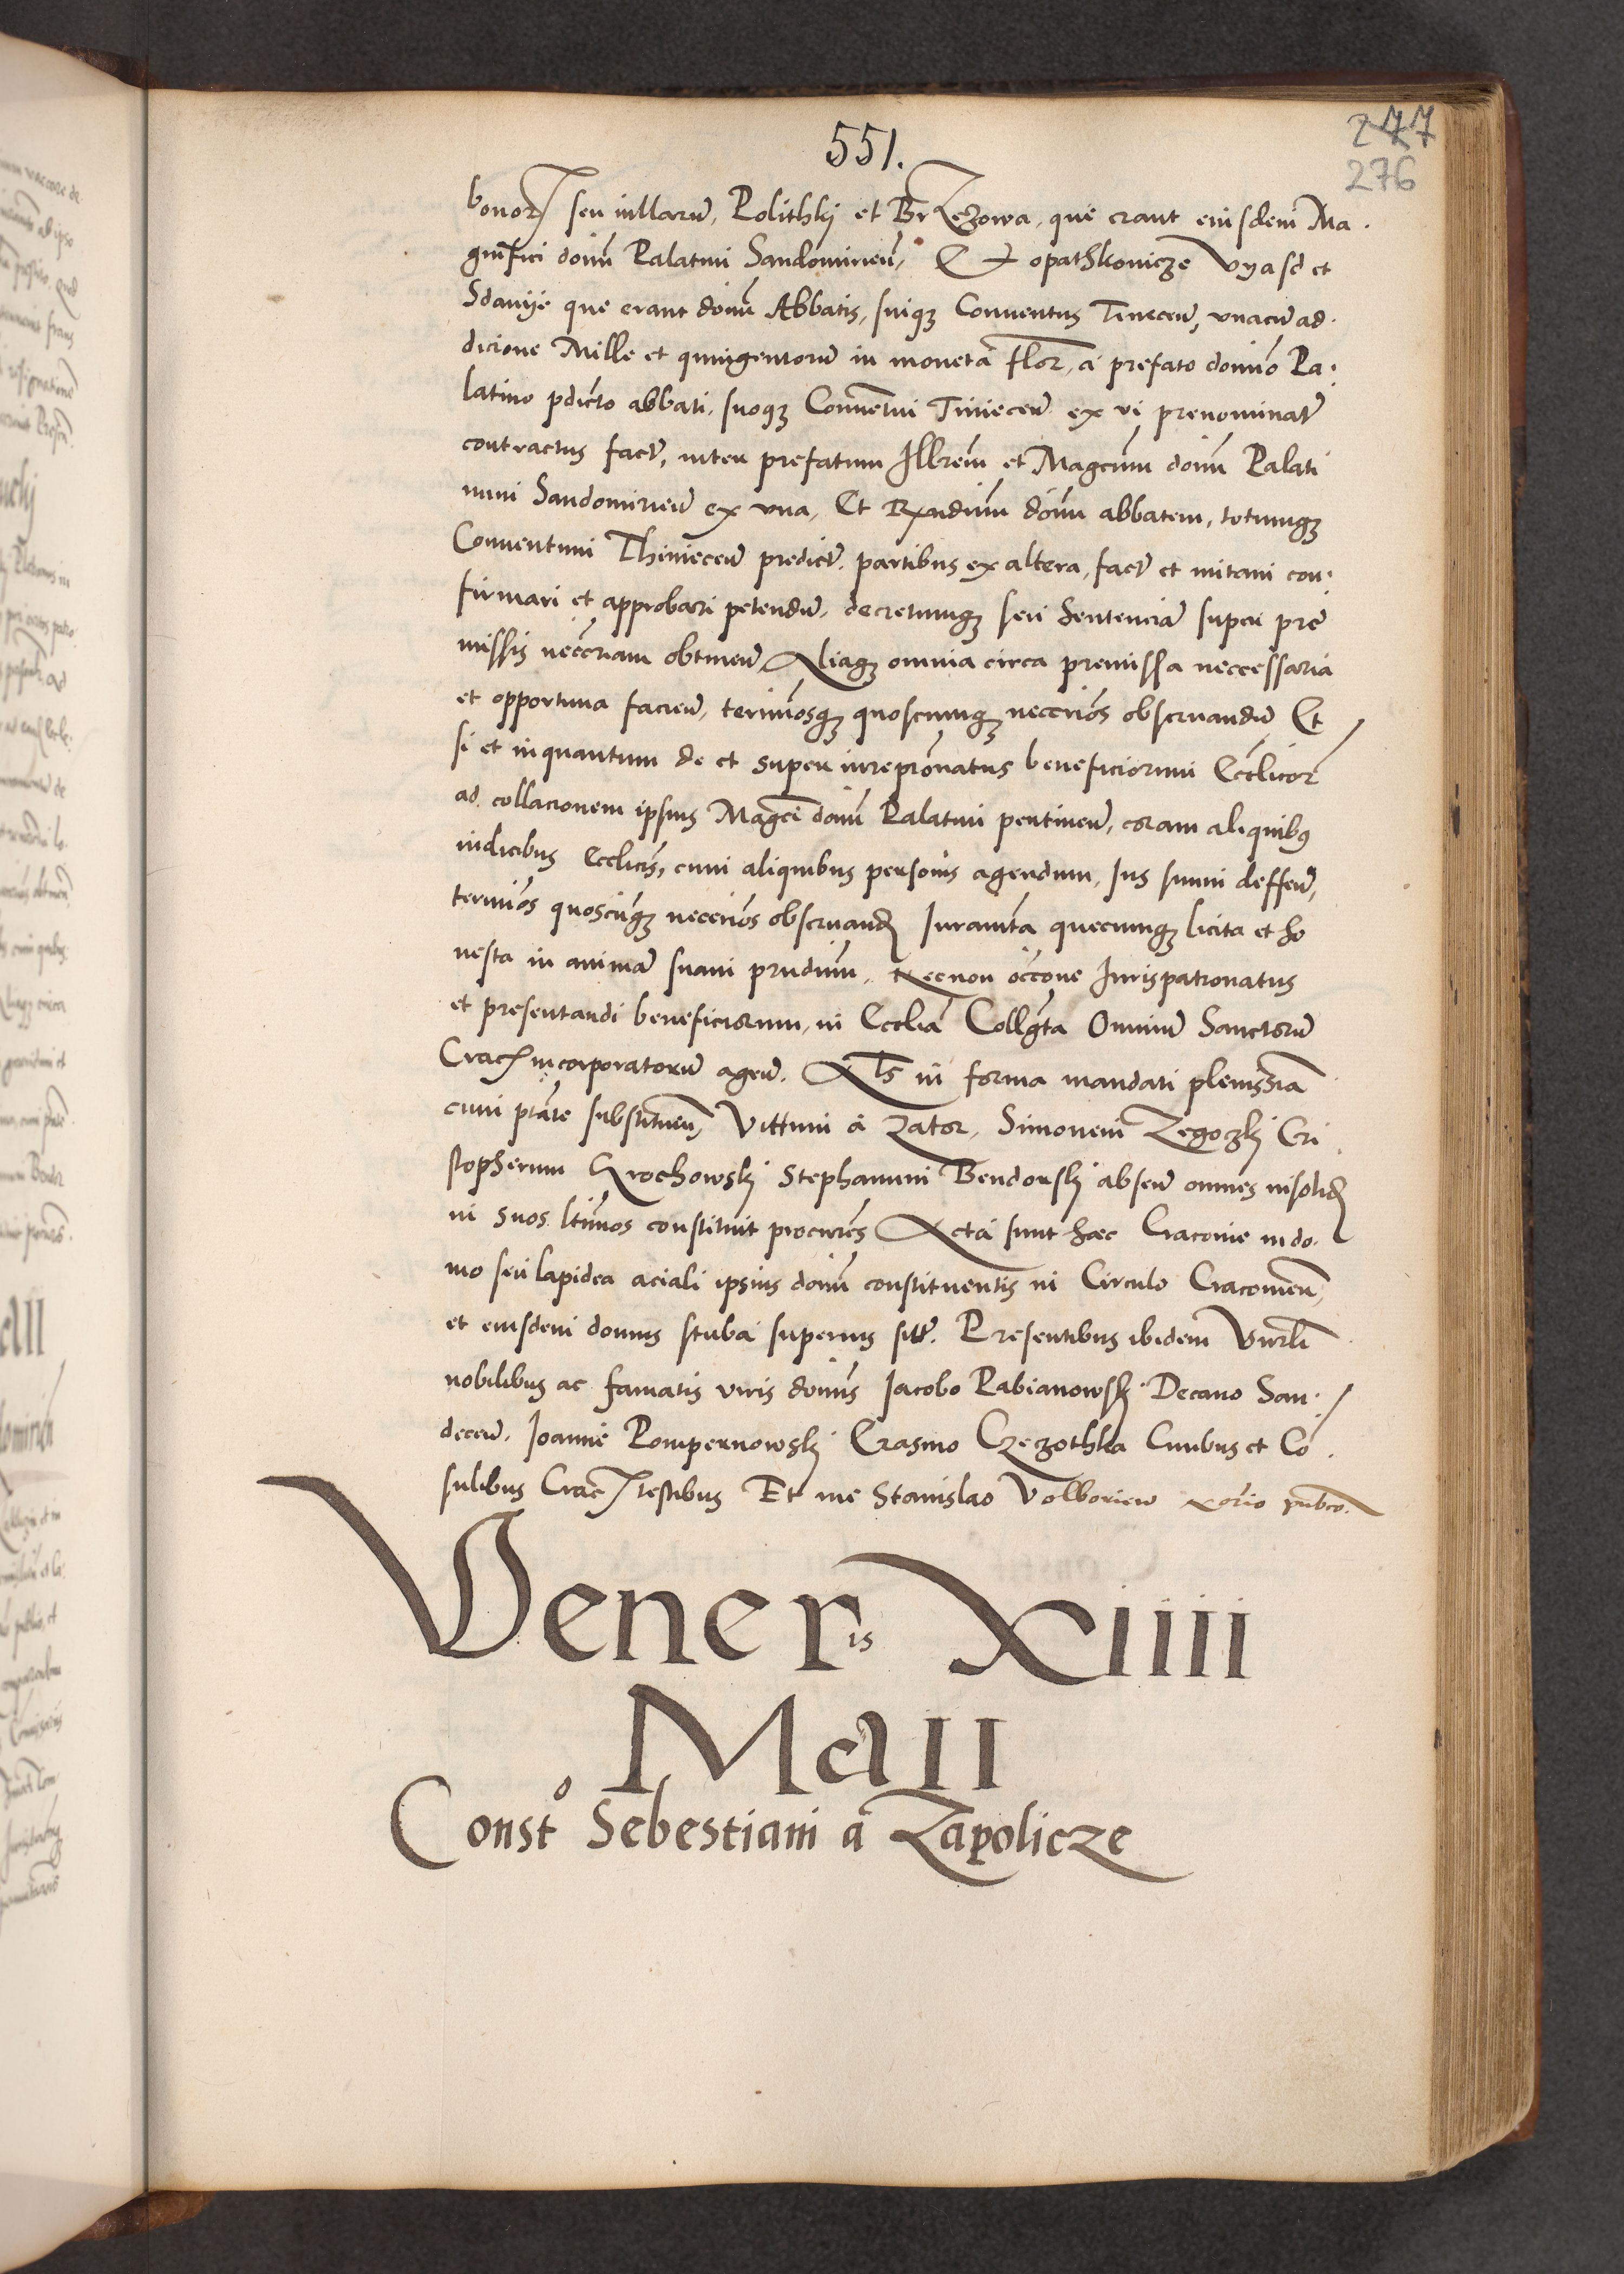 551.
247
276
bonor seu villarũ, Polithkj et BrZezowa, que erant eiusdem Ma.
gnifici domi Palatini Sandomirieñ, Et opathkonicze Vyasd et
Sdanije que erant domi Abbatis, suiqz Conuentus Tineceñ, vnacũ ad.
dicione Mille et quingentorũ in moneta flor, a prefato domino Pa.
latino pdicto abbati, suoqz Conuentui Tinieceñ ex vi prenominat
contractus fact, inter prefatum Illrem et Magcum domi Palati
num Sandomirieñ ex vna, Et Rxndum domi abbatem, totumqz
Conuentum Thinieceñ predict, partibus ex altera, fact et initam con.
firmari et approbari petendũ, decretumqz seu Sentenciã super pre
missis neccriam obtineñ, Aliaqz omnia circa premissa neccessaria
et opportuna facieñ, terminosqz quoscunqz neccrios obseruandũ Et
si et inquantum de et super iurepronatus beneficiorum Ecclicor
ad collacionem ipsius Magci domi Palatini pertineñ, coram aliquibus
iudicibus Ecclicis, cum aliquibus personis agendum, Jus suum deffeñ,
terminos quoscunqz neccrios obseruand Juramta quecunqz licita et ho
nesta in animã suam prndum, Necnon occone Jurispatronatus
et presentandi beneficiorum, in Eccliã Collgta Omniũ Sanctorũ
Crac incorporatorũ ageñ. Als in forma mandati plenissia
cum ptate substitueñ, Vittum a Zator, Simonem Zegozkj Cri
stopherum Grochowskj Stephanum Bendorskj abseñ omnes insolid
in suos ltimos constituit procures Acta sunt haec Cracouie in do.
mo seu lapidea aciali ipsius domi constituentis in Circulo Cracouieñ,
et eiusdem domus stuba superius sitt. Presentibus ibidem Vnrli
nobilibus ac famatis viris domis Jacobo Pabianowskj Decano San.
deceñ. Joanne Pompernowskj Erasmo Czeczothka Ciuibus et Co
sulibus Crac testibus Et me Stanislao Volborieñ notrio pubco.
Veneris XIIII
MaII
Consto Sebestiani a Zapolicze